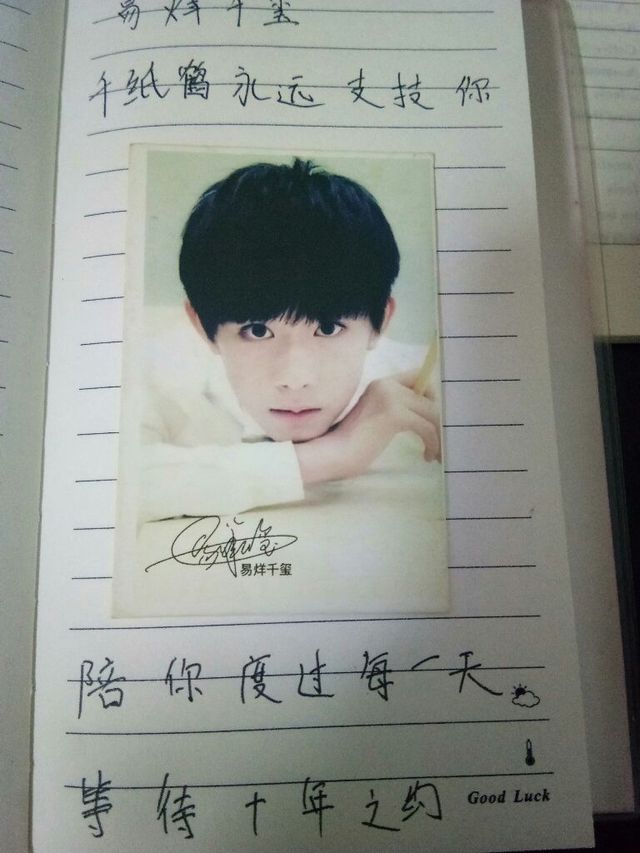 易烊千玺
千纸鹤永远支技你
易烊千玺
易烊千玺
陪你度过每一天
等待十年之约
Good Luck